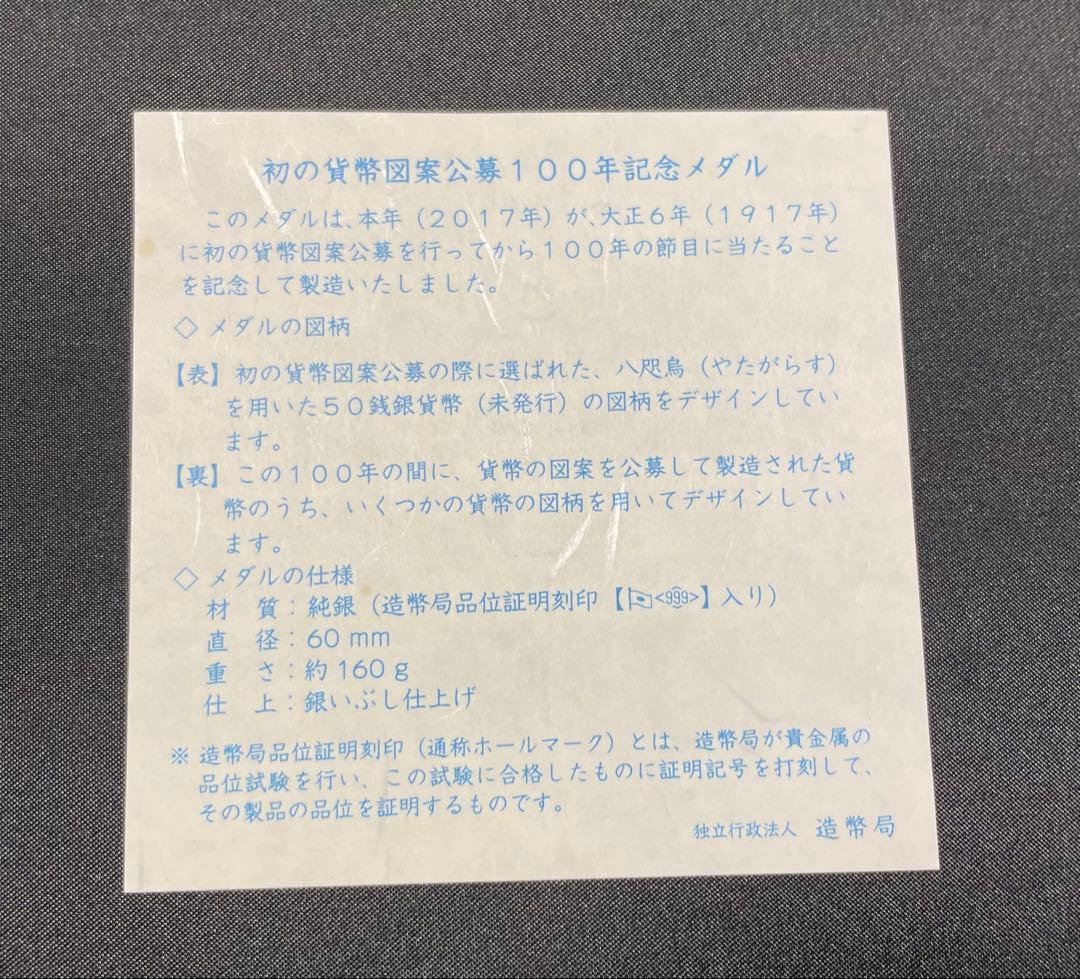 初の貨幣図案公募１００年記念メダル
このメダルは、本年（２０１７年）が、大正６年（１９１７年）
に初の貨幣図案公募を行ってから１００年の節目に当たること
を記念して製造いたしました。
◇ メダルの図柄
【表】初の貨幣図案公募の際に選ばれた、八咫烏（やたがらす）
を用いた５０銭銀貨幣（未発行）の図柄をデザインしてい
ます。
【裏】この１００年の間に、貨幣の図案を公募して製造された貨
幣のうち、いくつかの貨幣の図柄を用いてデザインしてい
ます。
◇ メダルの仕様
材　質：純銀（造幣局品位証明刻印【<999>】入り）
直　径：60 mm
重　さ：約 160 g
仕　上：銀いぶし仕上げ
※ 造幣局品位証明刻印（通称ホールマーク）とは、造幣局が貴金属の
品位試験を行い、この試験に合格したものに証明記号を打刻して、
その製品の品位を証明するものです。
独立行政法人　造幣局